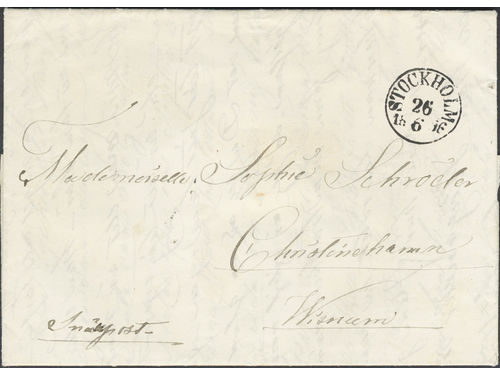 STOCKHOLM
26
18 6 56
Mademoiselle Sophie Schröder
Christinehamn
Wisnum
Snällpost